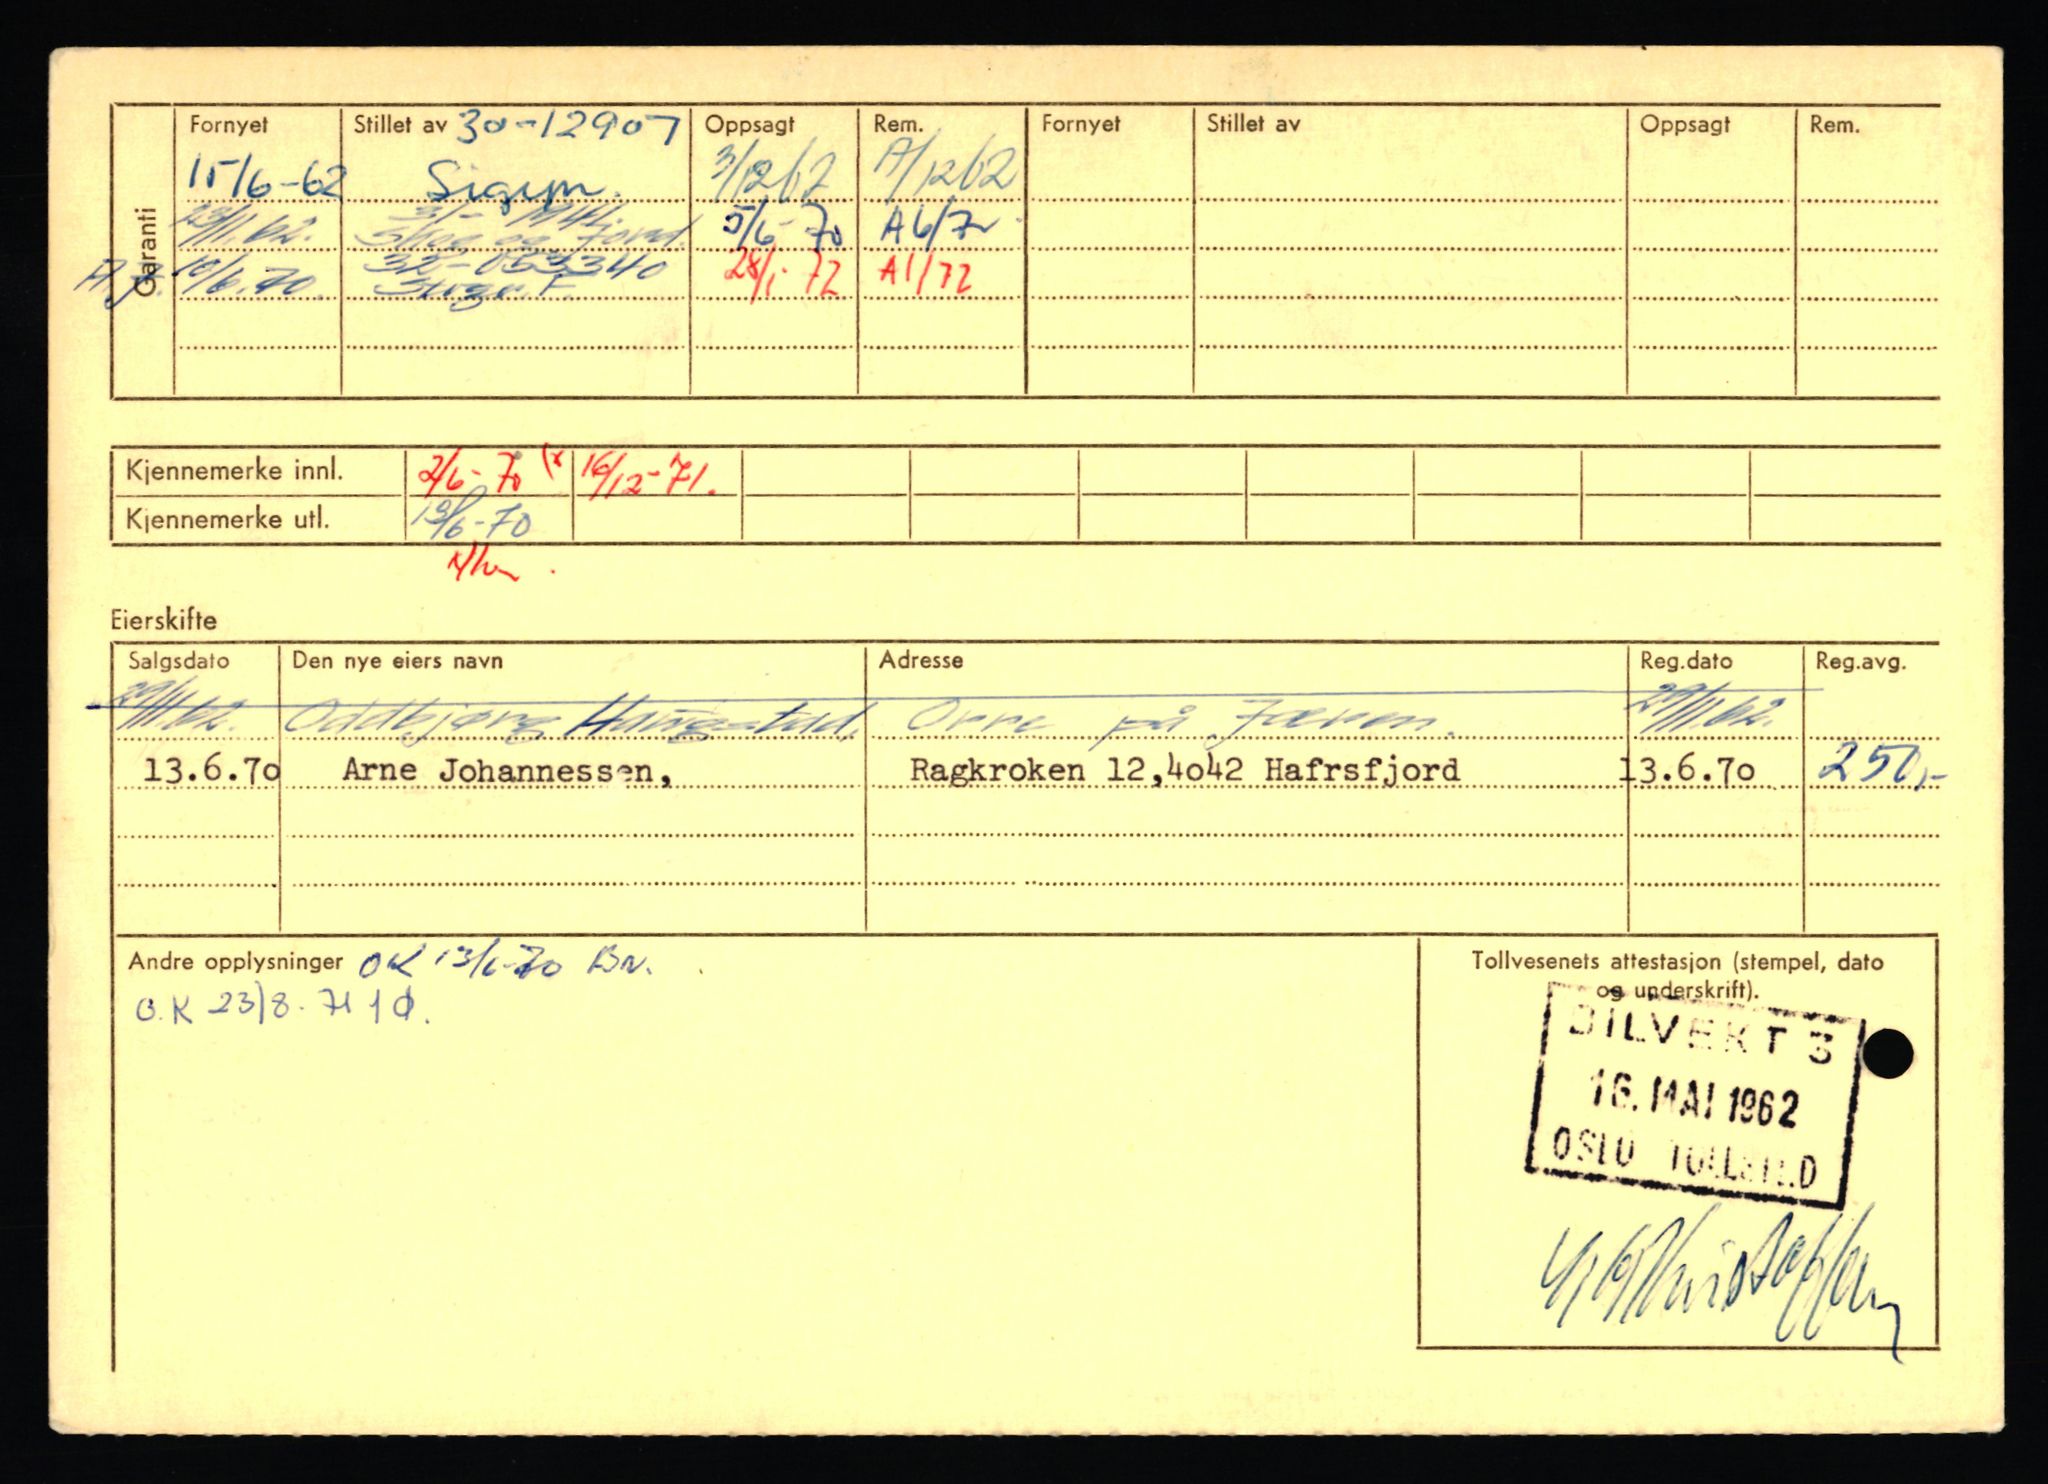 Garanti
Fornyet Stillet av 30-12907 Oppsagt Rem. Fornyet Stillet av Oppsagt Rem.
15/6-62 Sigyn. 3/12 62 A/12 62
29/11.62. Skog og Jord. 5/6-70 A6/70
10/6.70. 32-053340 28/1-72 A1/72
Kjennemerke innl. 2/6-70 16/12-71.
Kjennemerke utl. 19/6-70
Eierskifte
Salgsdato Den nye eiers navn Adresse Reg.dato Reg.avg.
29/11.62. Oddbjørg Haugstad, Orre på Jæren. 29/11.62.
13.6.70 Arne Johannessen, Ragkroken 12,4042 Hafrsfjord 13.6.70 250,-
Andre opplysninger OK 13/6-70 Bn.
O.K 23/8-71
Tollvesenets attestasjon (stempel, dato
og underskrift).
BILVEKT 3
16. MAI 1962
OSLO TOLLSTED